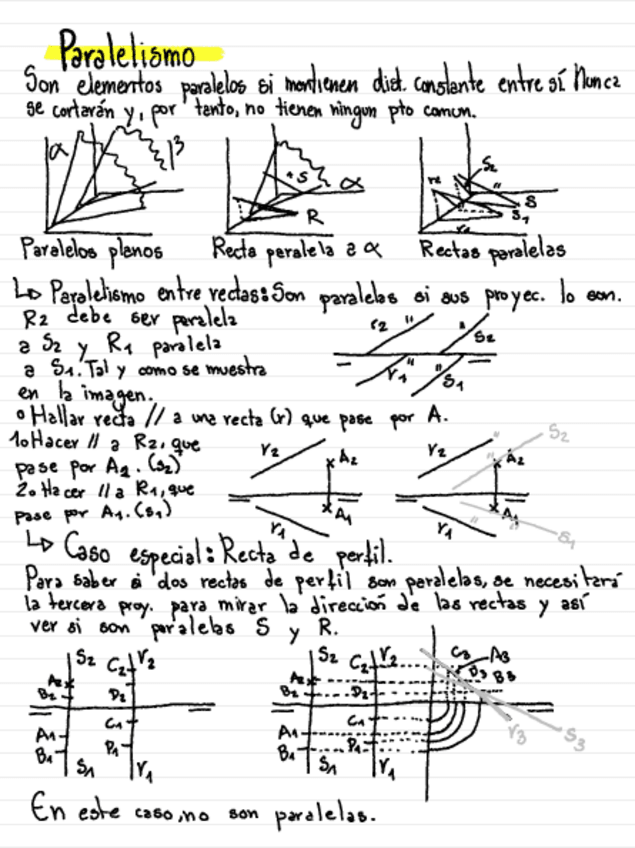 Paralelismo
Son elementos paralelos si mantienen dist. constante entre sí. Nunca
se cortarán y, por tanto, no tienen ningun pto comun.
α β
+ S α
R
r2 S2
S
S1
r1
Paralelos planos Recta paralela a α Rectas paralelas
↳ Paralelismo entre rectas: Son paralelas si sus proyec. lo son.
R2 debe ser paralela
a S2 y R1 paralela
a S1. Tal y como se muestra
en la imagen.
r2 " " S2
r1 " " S1
o Hallar recta // a una recta (r) que pase por A.
1o Hacer // a R2, que
pase por A2. (s2)
2o Hacer // a R1, que
pase por A1. (s1)
r2 A2
r1 A1
r2 " S2
A2
r1 " A1 S1
↳ Caso especial: Recta de perfil.
Para saber si dos rectas de perfil son paralelas, se necesitará
la tercera proy. para mirar la dirección de las rectas y así
ver si son paralelas S y R.
S2 C2 r2
A2
B2 D2
C1
A1
B1 D1
S1 r1
S2 C2 r2 C3 A3
A2 D3 B3
B2 D2
C1
A1
B1 D1
S1 r1
r3 S3
En este caso, no son paralelas.